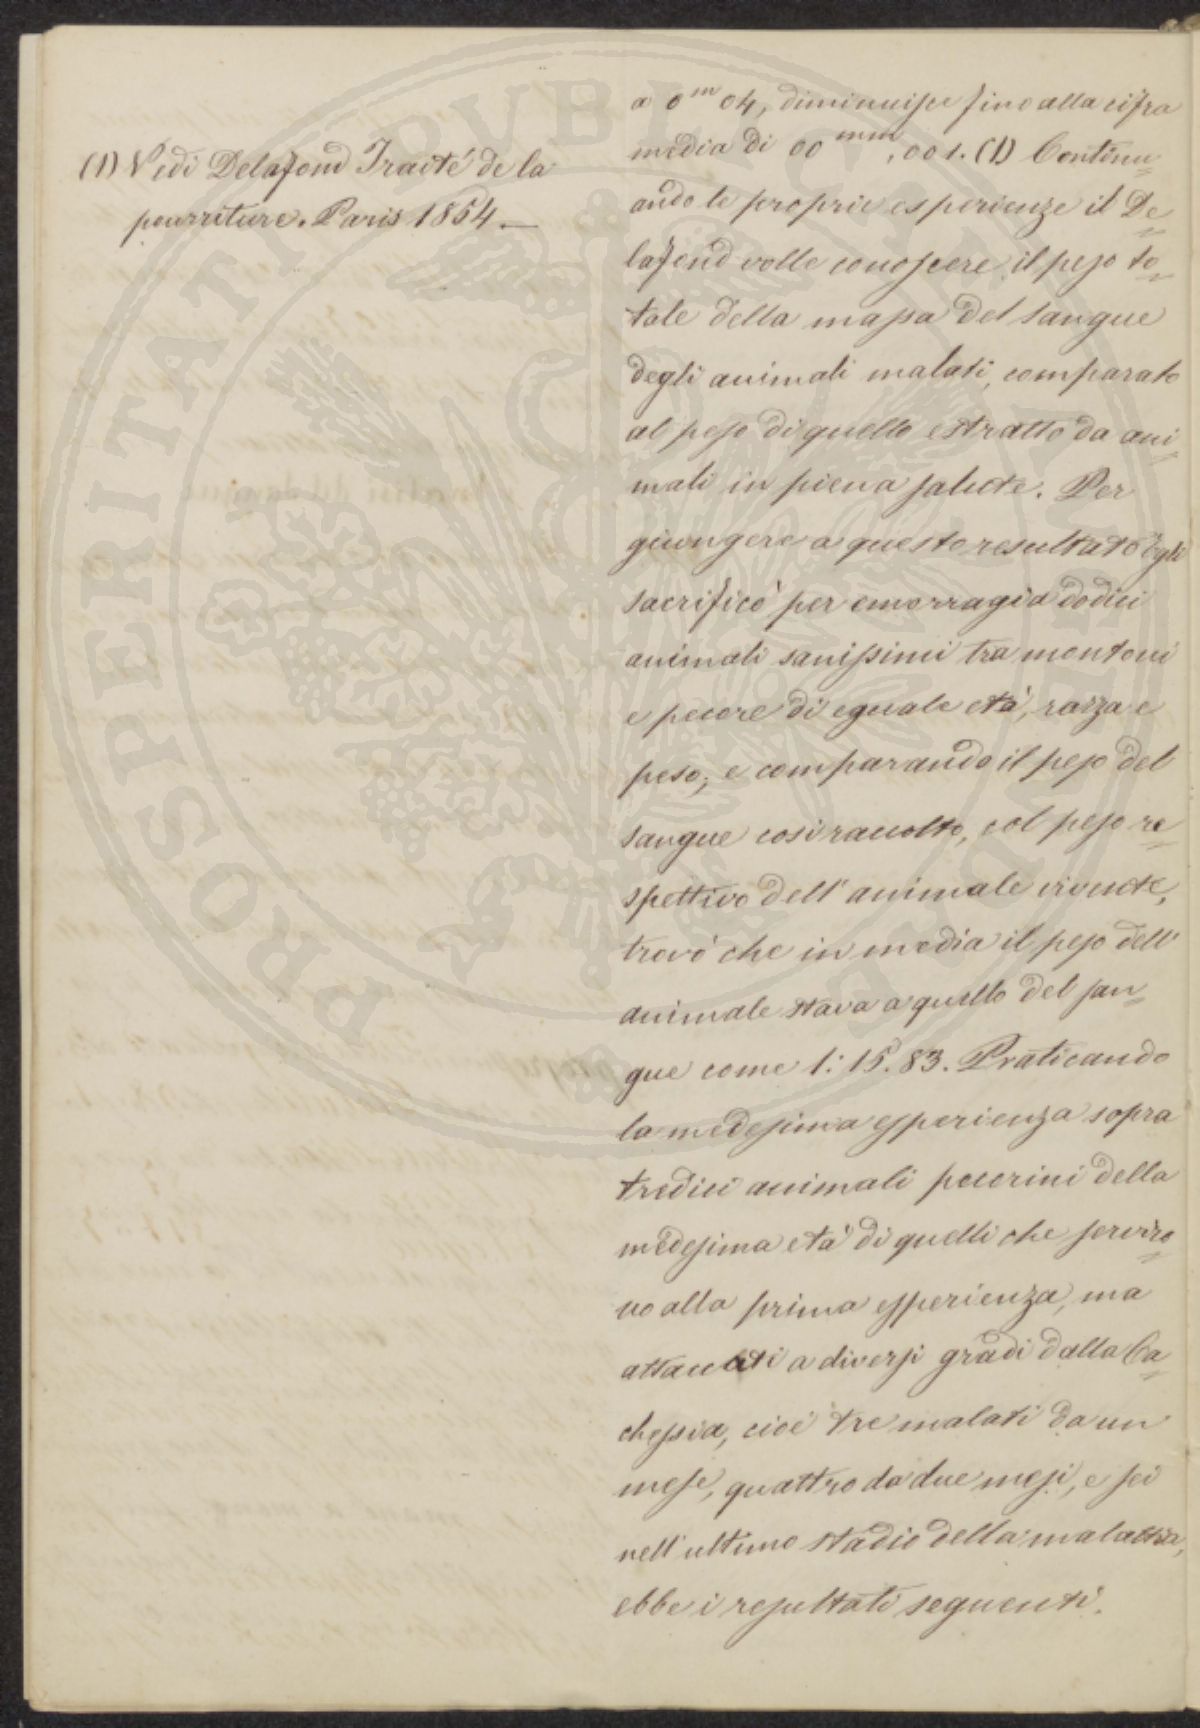 (1) Vedi Delafond Traité de la
pourriture. Paris 1854.—
a 0ᵐ 04, diminuisce fino alla cifra
media di 00ᵐᵐ, 001. (1) Continu=
ando le proprie esperienze il De=
lafond volle conoscere il peso to=
tale della massa del sangue
degli animali malati, comparato
al peso di quello estratto da ani=
mali in piena salute. Per
giungere a questo resultato egli
sacrificò per emorragia dodici
animali sanissimi tra montoni
e pecore di eguale età, razza e
peso; e comparando il peso del
sangue così raccolto, col peso re=
spettivo dell'animale vivente,
trovò che in media il peso dell'
animale stava a quello del san=
gue come 1: 15. 83. Praticando
la medesima esperienza sopra
tredici animali pecorini della
medesima età di quelli che serviro=
no alla prima esperienza, ma
attaccati a diversi gradi dalla Ca=
chessia, cioè tre malati da un
mese, quattro da due mesi, e sei
nell'ultimo stadio della malattia,
ebbe i resultati seguenti.
PROSPERITATI PVBLICAE